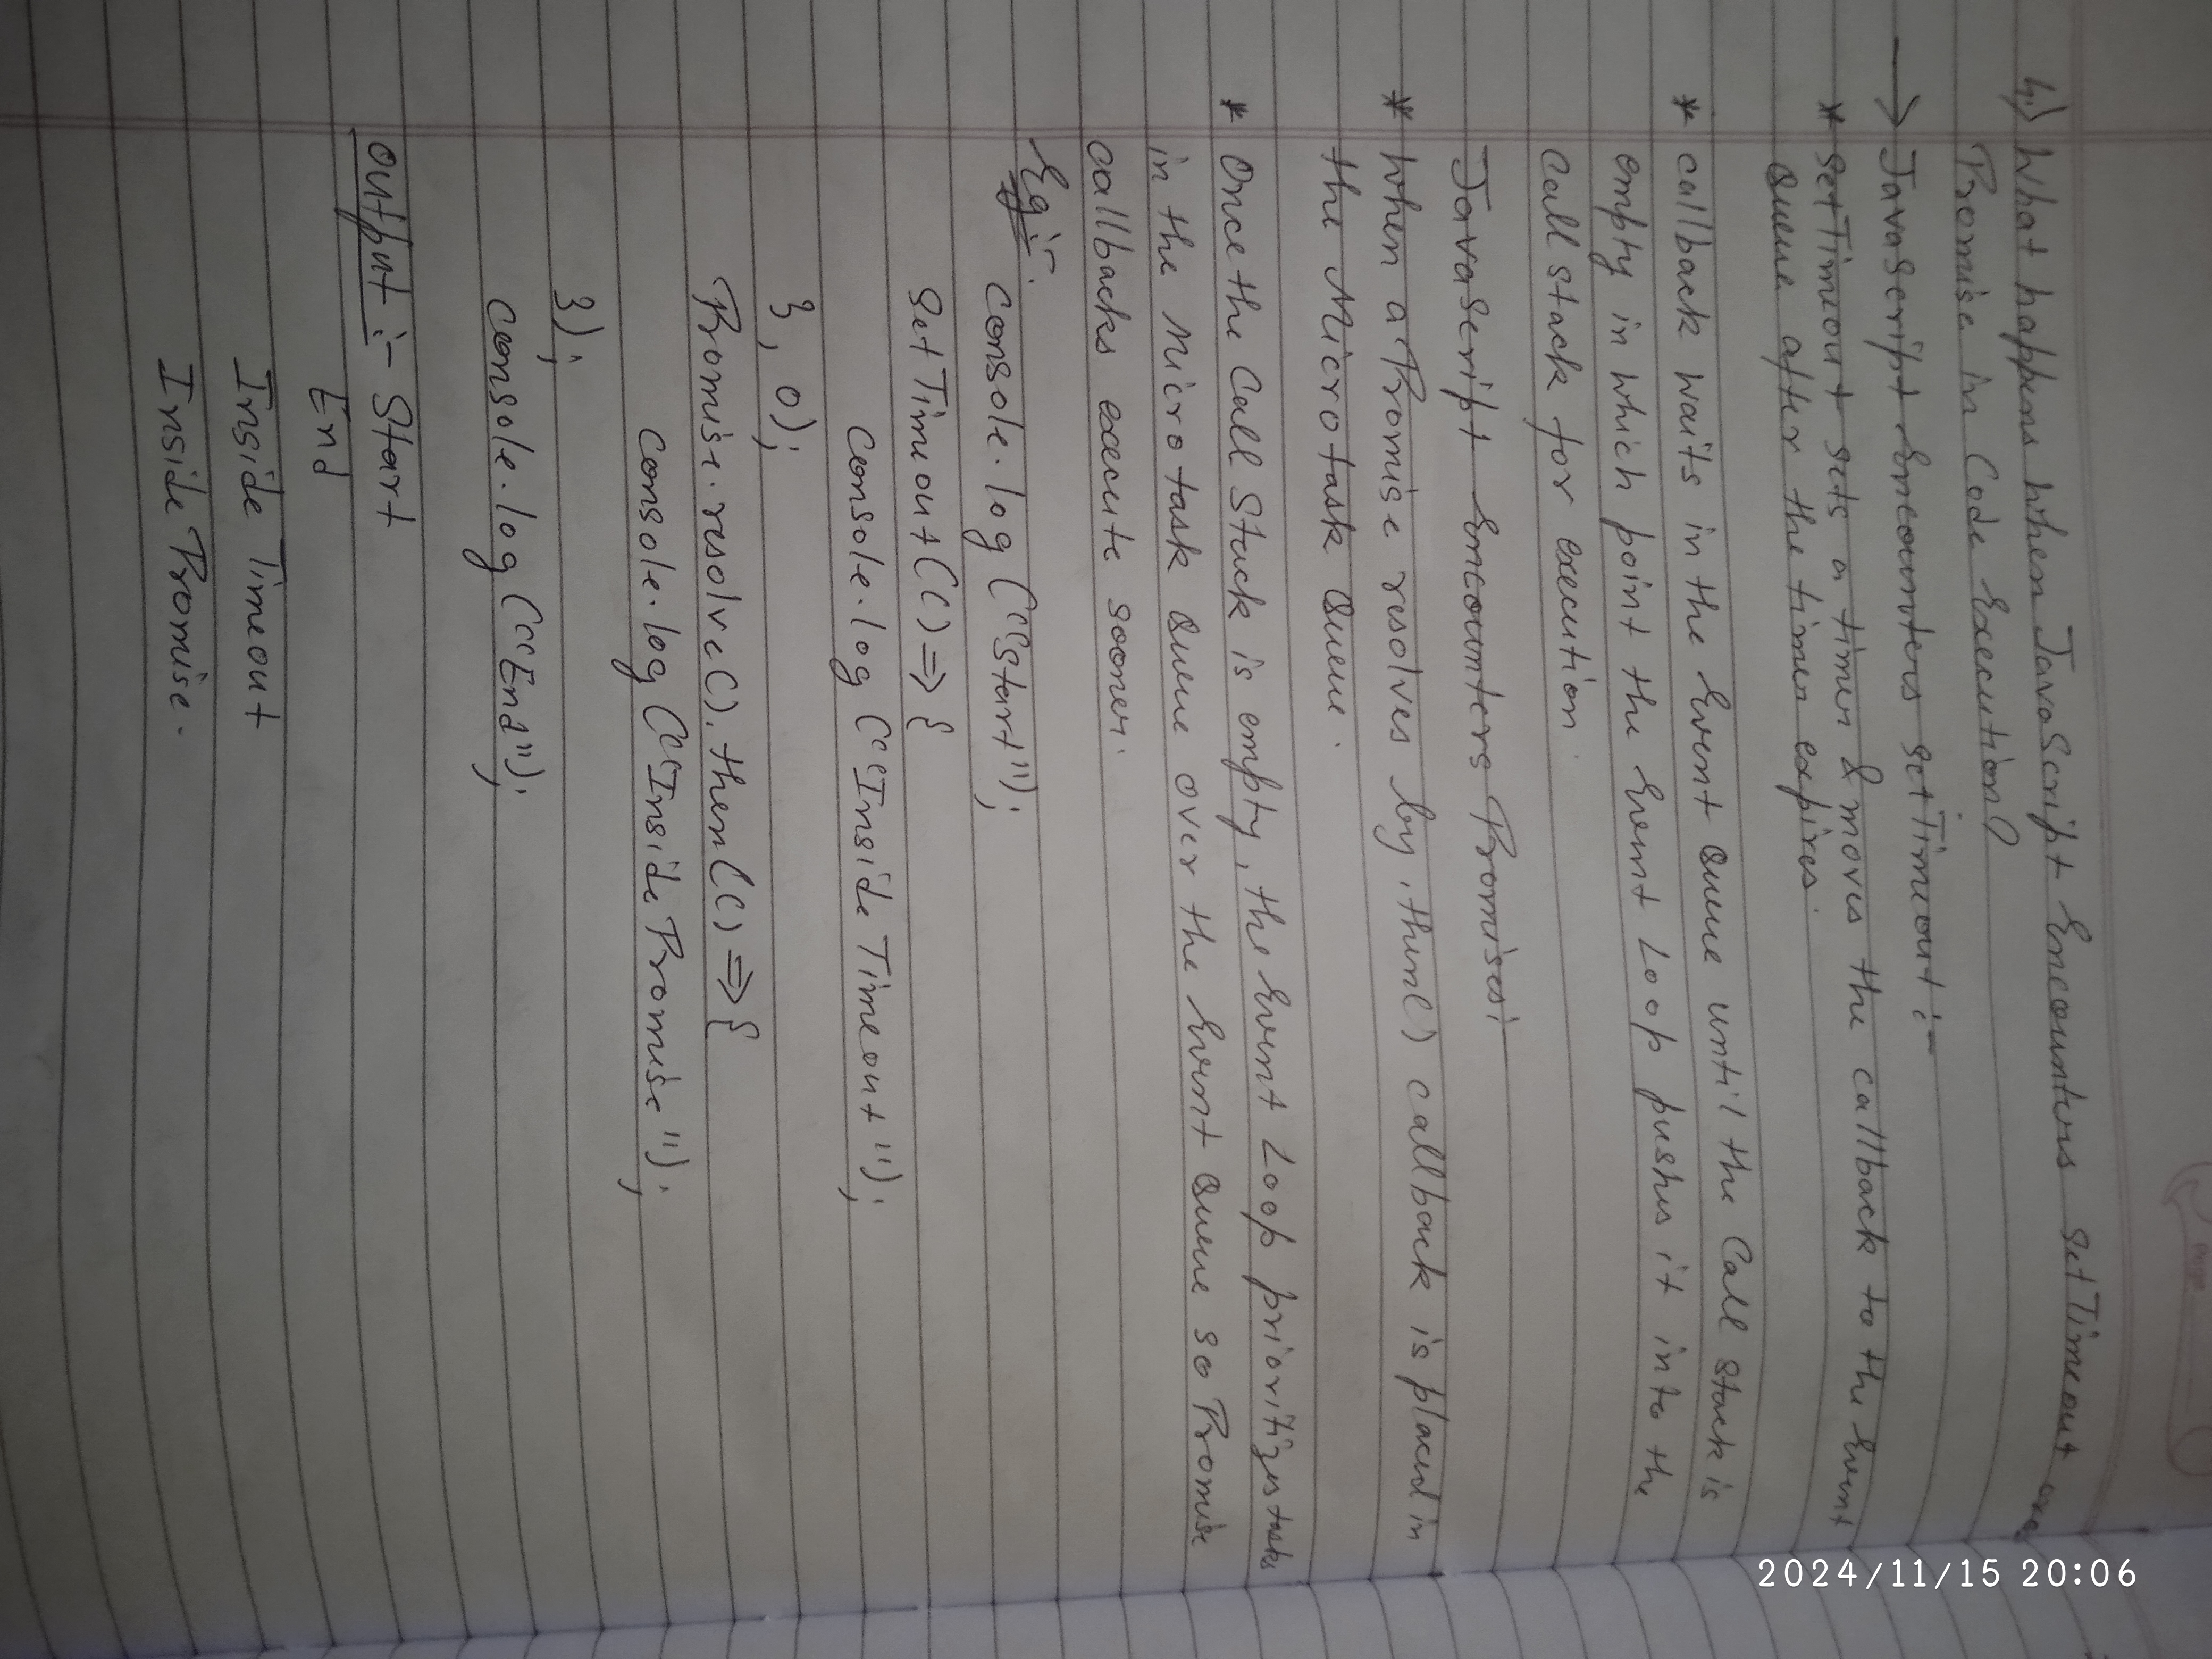 4.) What happens when JavaScript Encounters setTimeout and
Promise in Code Execution?
→ JavaScript Encounters setTimeout :-
* setTimeout sets a timer & moves the callback to the Event
Queue after the timer expires.
* callback waits in the Event Queue until the Call stack is
empty in which point the Event Loop pushes it into the
Call stack for execution.
JavaScript Encounters Promises:-
* When a Promise resolves by .then() callback is placed in
the Microtask Queue.
* Once the Call Stack is empty, the Event Loop prioritizes tasks
in the Microtask Queue over the Event Queue so Promise
callbacks execute sooner.
Eg:-
console.log ("Start");
setTimeout(() => {
console.log ("Inside Timeout");
}, 0);
Promise.resolve().then(() => {
console.log ("Inside Promise");
});
console.log ("End");
Output :- Start
End
Inside Timeout
Inside Promise.
2024/11/15 20:06